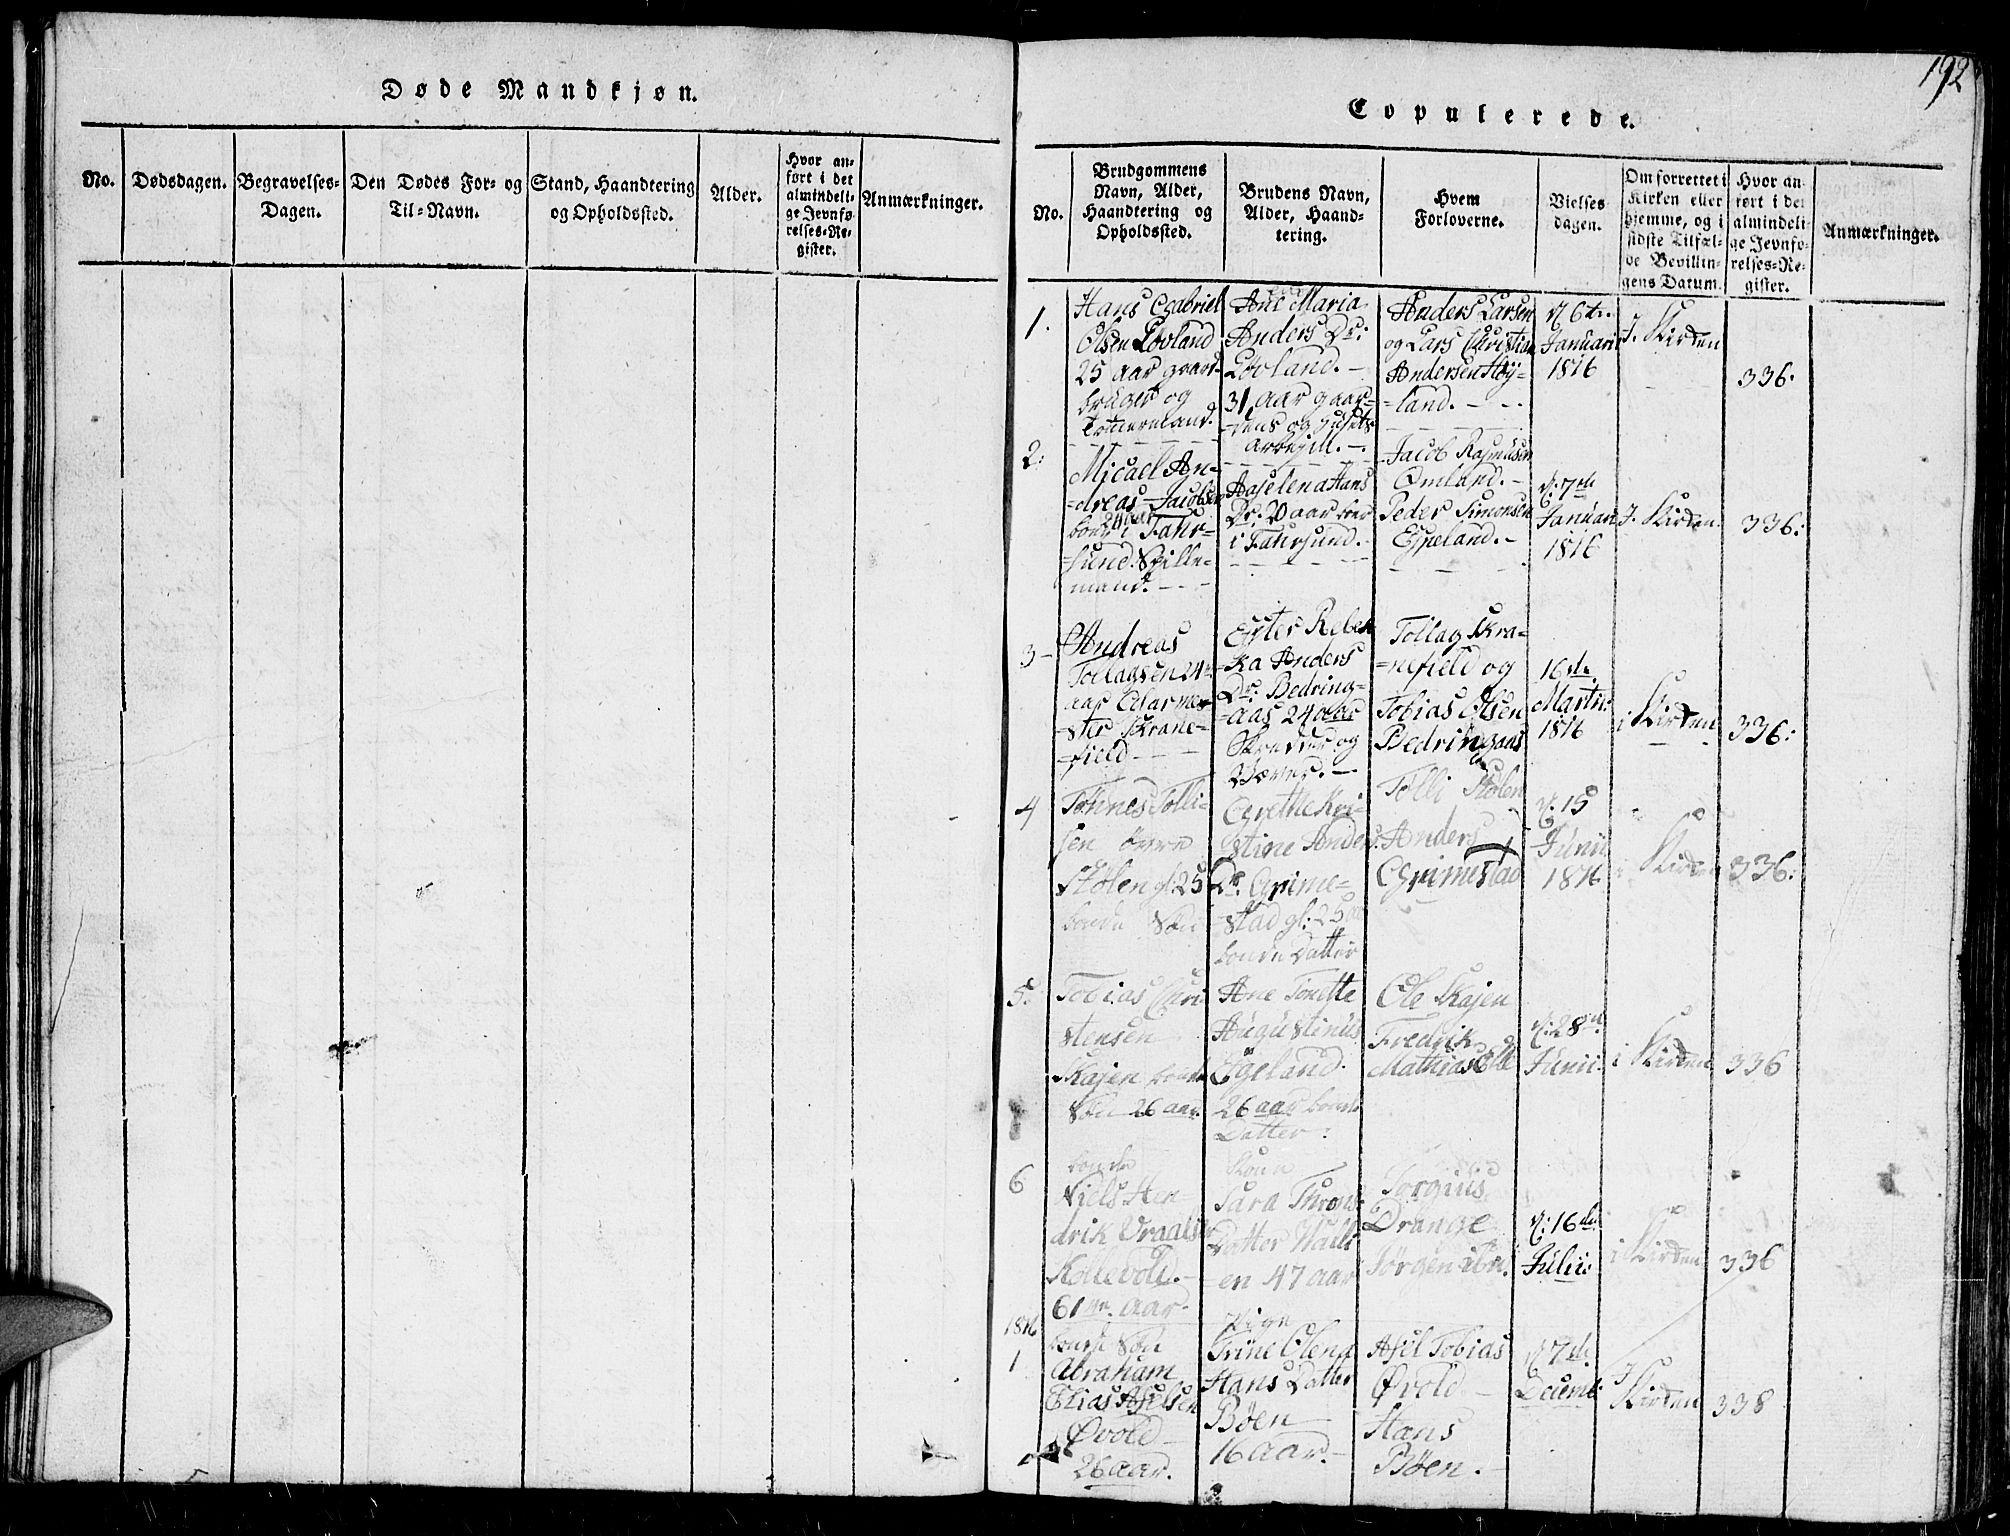 Døde Mandkjøn.
No.
Dødsdagen.
Begravelses-
Dagen.
Den Dødes For- og
Til-Navn.
Stand, Haandtering
og Opholdssted.
Alder.
Hvor an-
ført i det
almindeli-
ge Jevnfø-
relses-Re-
gister.
Anmærkninger.
192
Copulerede.
No.
Brudgommens
Navn, Alder,
Haandtering og
Opholdssted.
Brudens Navn,
Alder, Haand-
tering.
Hvem
Forloverne.
Vielses
dagen.
Om forrettet i
Kirken eller
hjemme, og i
sidste Tilfæl-
de Bevillin-
gens Datum.
Hvor an-
ført i det
almindeli-
ge Jevnfø-
relses-Re-
gister.
Anmærkninger.
1.
Hans Gabriel
Olsen Løvland
25 aar gaard-
bruger og
Tømermand.
Ane Maria
Anders Dr:
Løvland. -
31 aar gaar-
-dens og Huusets
Anders Larsen
og Lars Christian
Andersen Høy-
-land. - - -
d 6te
Januari
1816
J. Kirken
336.
2:
Micael An-
-dreas Jacobsen
boende i Fahr-
-sund. Spille-
mand. - - -
Aaselena Hans
Dr. 20 aar
i Fahrsund. -
Jacob Rasmusen
Omland. -
Peder Simonsen
Espeland. -
d. 7de
Januari
1816
J. Kirken
336:
3-
Andreas
Tollagsen 24-
aar
-ster Skrane-
-field - -
Ester Rebek
-ka Anders
Dr. Bedring-
-aas 24 aar
og
Tollag Skra-
-nefield og
Tobias Olsen
Bedringaas
16de
Martii
1816
i Kirken
336:
4
Tønnes Tolli-
sen øvre
Stølen gl: 25
bonde Søn
Grethe Kri-
stine Anders
Dr. Grime-
stad gl: 25 aar
bonde Datter
Tølli Stølen
Anders
Grimestad
d. 15
Junii
1816
i Kirken
336:
5.
Tobias Chri
stensen
Skajen bonde
Søn 26 aar.
Ane Tonette
Augustinus
Egeland.
26 aar bonde
Datter:
Ole Skajen
Fredrik
Mathias
d: 28de
Junii:
i Kirken
336
6
bonde
Niels Hen
drik
Kollevold. -
61 aar.
Sara Throns
Datter
en 47 aar
Torgius
Drange
Jørgen
d: 16de
Julii:
i Kirken
336
1816
1
bonde Søn
Abraham
Elias Aselsen
Øvold -
26 aar.
Pige
Trine Olena
Hans Datter
Bøen
16 aar. -
Asel Tobias
Øvold -
Hans
Bøen. -
d 7de
Decemb:
J
Kirken
338